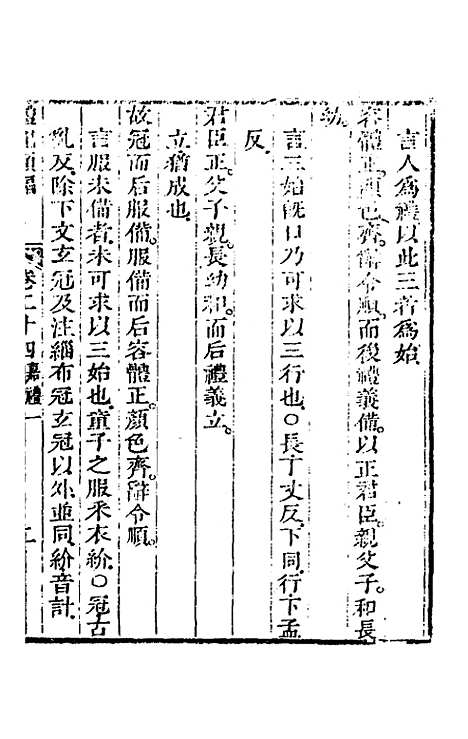 言人為禮以此三者為始
容體正顏色齊辭令順而後禮義備以正君臣親父子和長
幼
言三始既日乃可求以三行也○長丁丈反下同行下孟
反
君臣正父子親長幼和而后禮義立
立猶成也
故冠而后服備服備而后容體正顏色齊辭令順
言服未備者未可求以三始也童子之服采衣紒○冠古
亂反除下文玄冠及注緇布冠玄冠以外並同紒音計
卷二十四嘉禮一 二